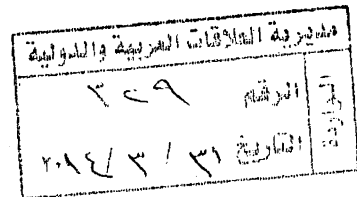 مديرية العلاقات العربية والدولية
الواردة
الرقم ٣٢٩
التاريخ ٣١ / ٣ / ٢٠١٤